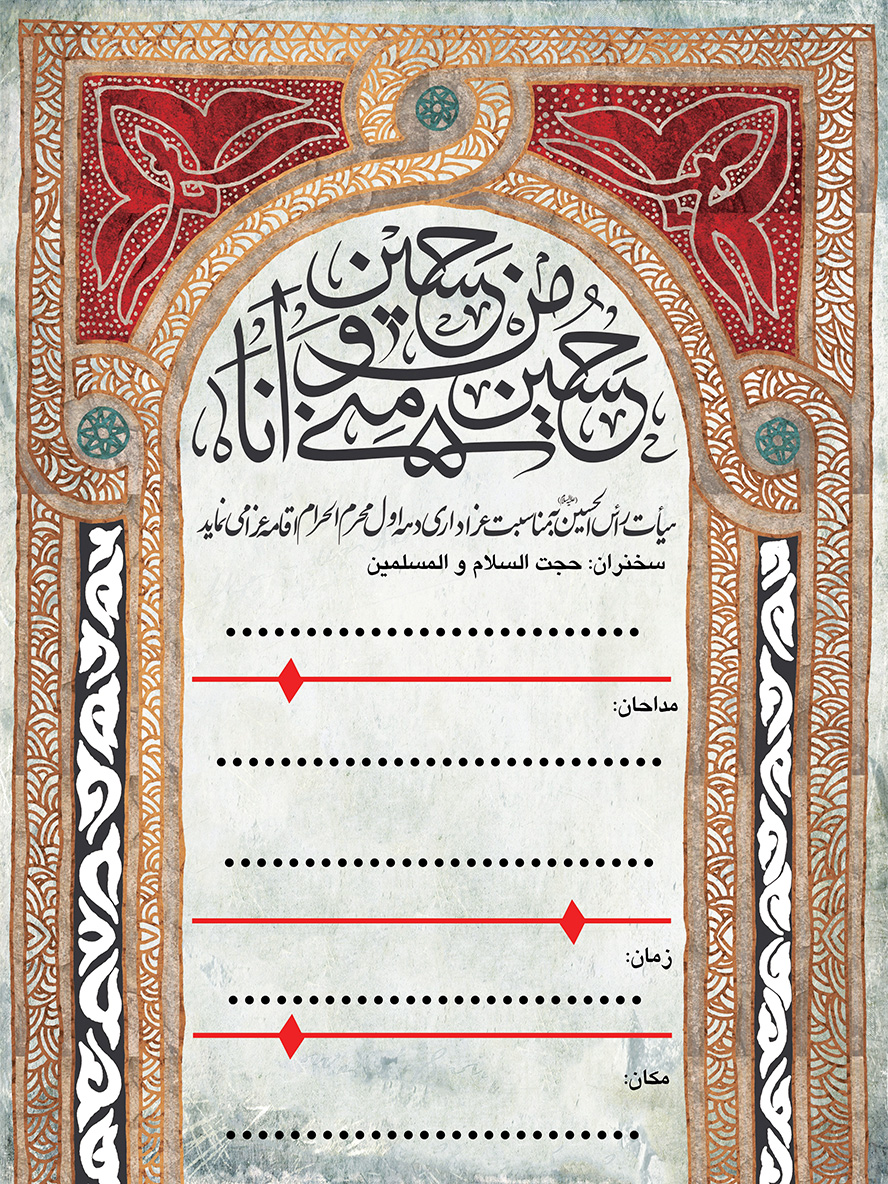 حسین منی و انا من حسین
هیأت رأس الحسین (علیه‌السلام) به مناسبت عزاداری دهه اول محرم الحرام اقامه عزا می نماید
سخنران: حجت السلام و المسلمین
مداحان:
زمان:
مکان: